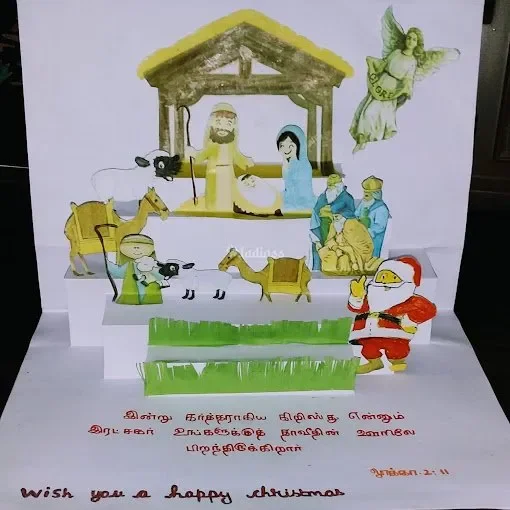 GLORIA
இன்று கர்த்தராகிய கிறிஸ்து என்னும்
இரட்சகர் உங்களுக்குத் தாவீதின் ஊரிலே
பிறந்திருக்கிறார்
லூக்கா. 2: 11
Wish you a happy christmas